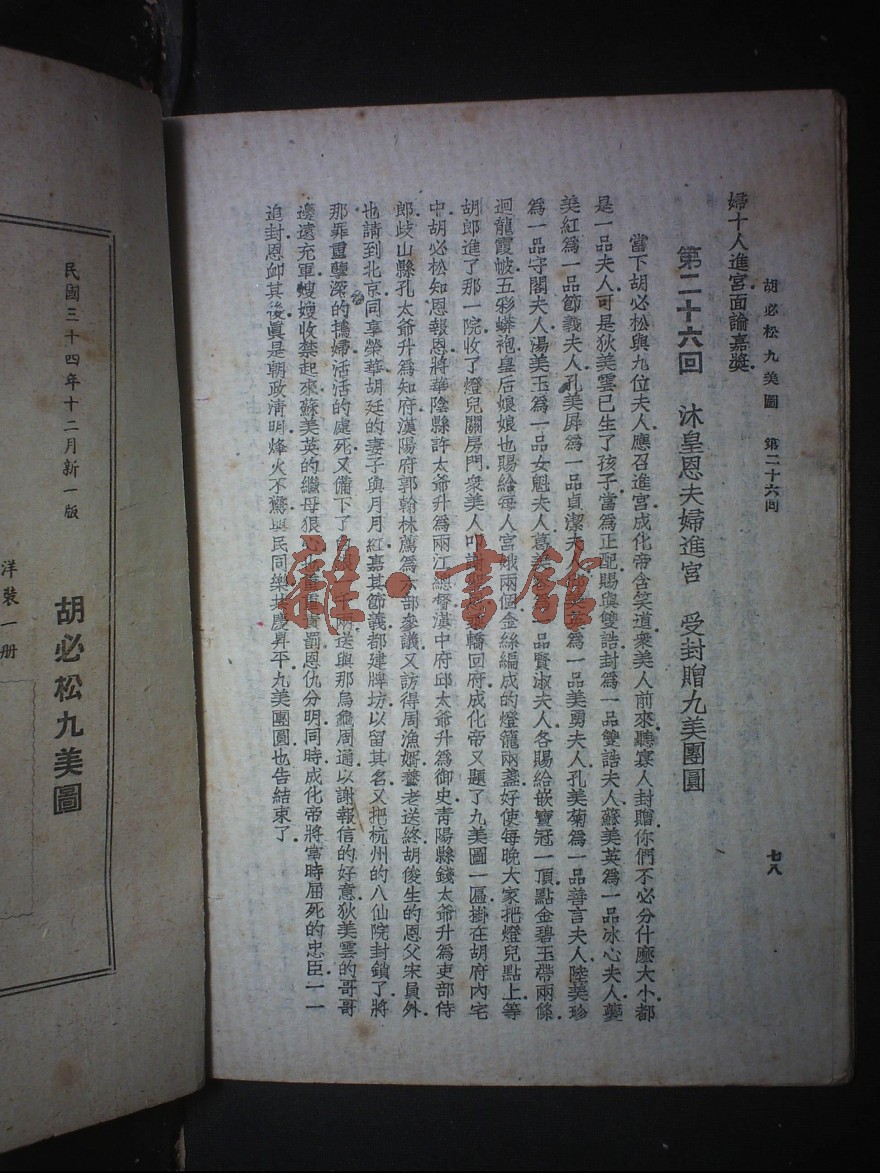 胡必松九美圖　第二十六回
七八
婦十人進宮面論嘉奬
第二十六回　沐皇恩夫婦進宮　受封贈九美團圓
當下胡必松與九位夫人應召進宮成化帝含笑道衆美人前來聽寡人封贈你們不必分什麼大小都
是一品夫人可是狄美雲已生了孩子當爲正配賜與雙誥封爲一品雙誥夫人蘇美英爲一品冰心夫人龔
美紅爲一品節義夫人孔美屏爲一品貞潔夫人爲一品美勇夫人孔美菊爲一品善言夫人陸美珍
爲一品守閣夫人湯美玉爲一品女魁夫人葛美品賢淑夫人各賜給嵌寶冠一頂點金碧玉帶兩條
迴龍霞帔五彩蟒袍皇后娘娘也賜給每人宮娥兩個金絲編成的燈籠兩盞好使每晚大家把燈兒點上等
胡郎進了那一院收了燈兒關房門衆美人叩謝轎回府成化帝又題了九美圖一區掛在胡府內宅
中胡必松知恩報恩將華陰縣許太爺升爲兩江總督湛中府邱太爺升爲御史靑陽縣錢太爺升爲吏部侍
郎歧山縣孔太爺升爲知府漢陽府郭翰林薦爲六部參議又訪得周漁婿養老送終胡俊生的恩父宋員外
也請到北京同享榮華胡廷的妻子與月月紅嘉其節義都建牌坊以留其名又把杭州的八仙院封鎖了將
那罪重孽深的鴇婦活活的處死又備下了兩送與那烏龜周通以謝報信的好意狄美雲的哥哥
邊遠充軍嫂嫂收禁起來蘇美英的繼母狠心責罰恩仇分明同時成化帝將當時屈死的忠臣一一
追封恩卹其後眞是朝政淸明烽火不驚與民同樂共慶昇平九美團圓也告結束了
雜·書館
民國三十四年十二月新一版
洋裝一册
胡必松九美圖